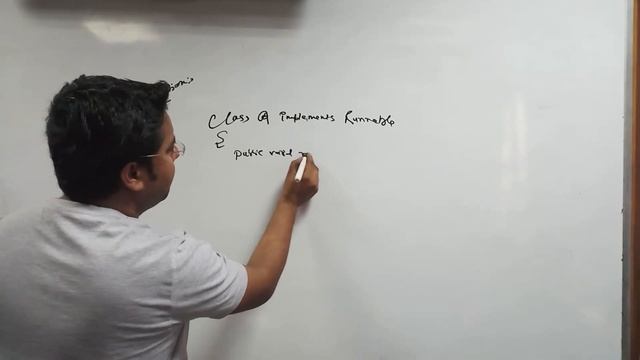 class A implements Runnable
{
public void